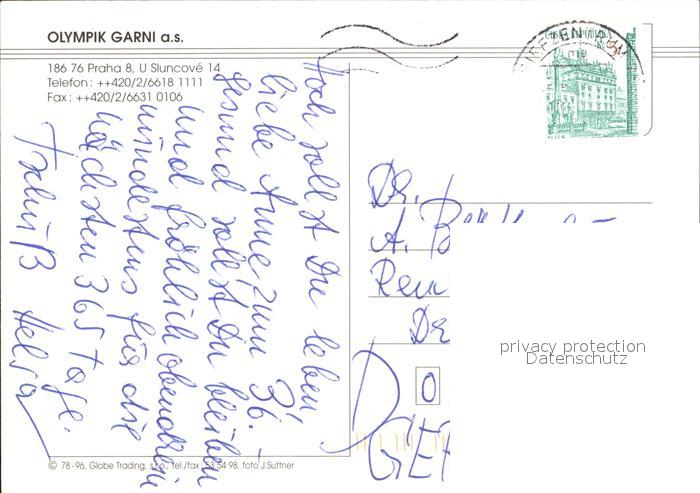 OLYMPIK GARNI a.s.
186 76 Praha 8, U Sluncové 14
Telefon: ++420/2/6618 1111
Fax: ++420/2/6631 0106
Hoch sollst Du leben,
liebe Anne, zum 36.
Gesund sollst Du bleiben
und fröhlich obendrein
mindestens für die
nächsten 365 Tage.
Tschüß Helga
Dr.
A.
D
GE
privacy protection
Datenschutz
© 78-96, Globe Trading, s.r.o., tel./fax 53 54 98, foto J.Suttner